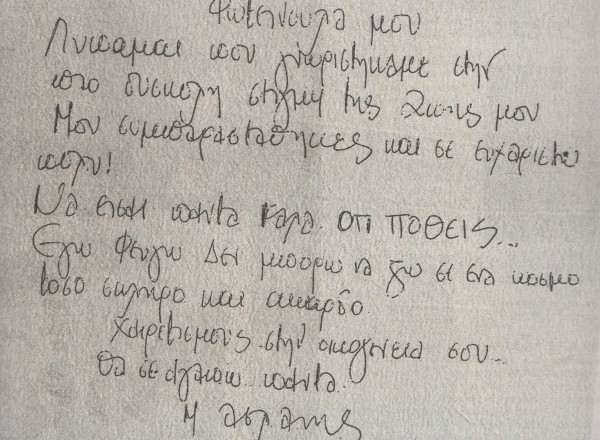 Φωτεινουλα μου
Λυπαμαι που γνωριστηκαμε στην
πιο δυσκολη στιγμη της ζωης μου
Μου συμπαρασταθηκες και σε ευχαριστω
πολυ!
Να εισαι παντα καλα. ΟΤΙ ΠΟΘΕΙΣ...
Εγω Φευγω Δεν μπορω να ζω σε ενα κοσμο
τοσο σκληρο και ακαρδο
Χαιρετισμους στην οικογενεια σου...
Θα σε αγαπω παντα.
Η